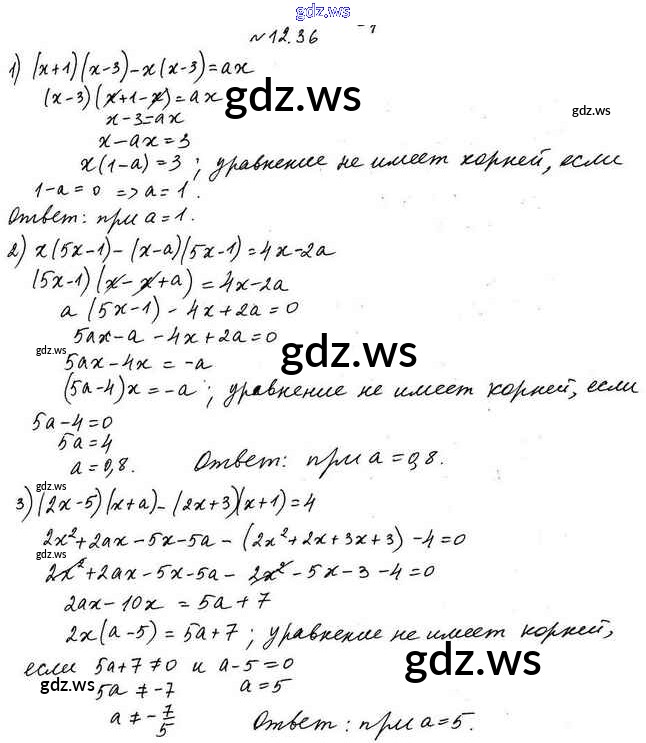 gdz.ws
№12.36
1) (x+1)(x-3)-x(x-3)=ax
(x-3)(x+1-x)=ax
gdz.ws
gdz.ws
x-3=ax
x-ax=3
x(1-a)=3; уравнение не имеет корней, если
1-a=0 => a=1.
Ответ: при a=1.
2) x(5x-1)-(x-a)(5x-1)=4x-2a
(5x-1)(x-x+a)=4x-2a
a(5x-1)-4x+2a=0
5ax-a-4x+2a=0
gdz.ws
gdz.ws
5ax-4x=-a
(5a-4)x=-a; уравнение не имеет корней, если
5a-4=0
5a=4
a=0,8. Ответ: при a=0,8.
gdz.ws
3) (2x-5)(x+a)-(2x+3)(x+1)=4
2x²+2ax-5x-5a-(2x²+2x+3x+3)-4=0
gdz.ws
2x²+2ax-5x-5a-2x²-5x-3-4=0
2ax-10x=5a+7
2x(a-5)=5a+7; уравнение не имеет корней,
если 5a+7≠0 и a-5=0
gdz.ws
gdz.ws
5a≠-7 a=5
a≠-7/5 Ответ: при a=5.